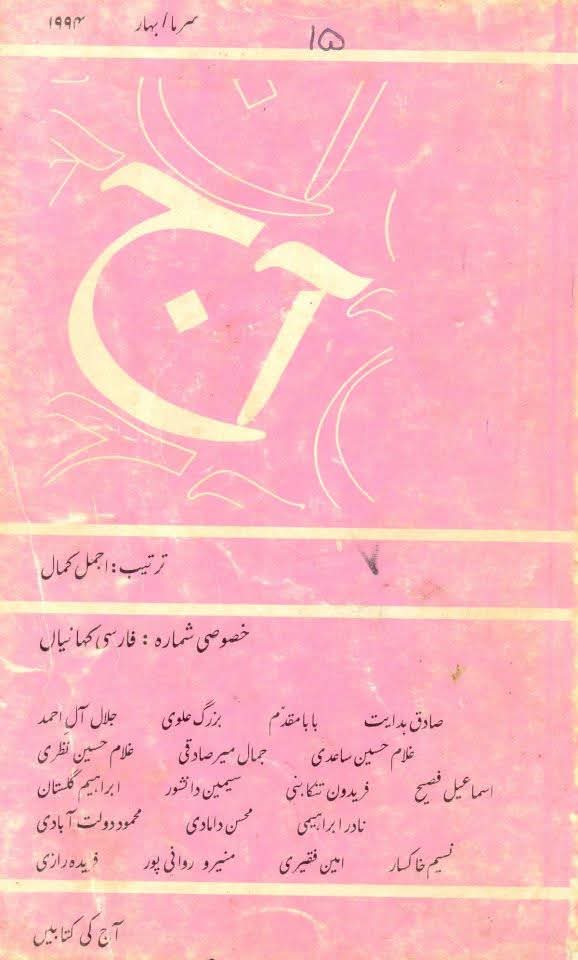 سرما / بہار ۱۹۹۴
۱۵
آج
ترتیب: اجمل کمال
۷
خصوصی شمارہ : فارسی کہانیاں
صادق ہدایت بابا مقدّم بزرگ علوی جلال آلِ احمد
غلام حسین ساعدی جمال میر صادقی غلام حسین نظری
اسماعیل فصیح فریدون تنکابنی سیمین دانشور ابراہیم گلستان
نادر ابراہیمی محسن دامادی محمود دولت آبادی
نسیم خاکسار امین فقیری منیرو روانی پور فریدہ رازی
آج کی کتابیں